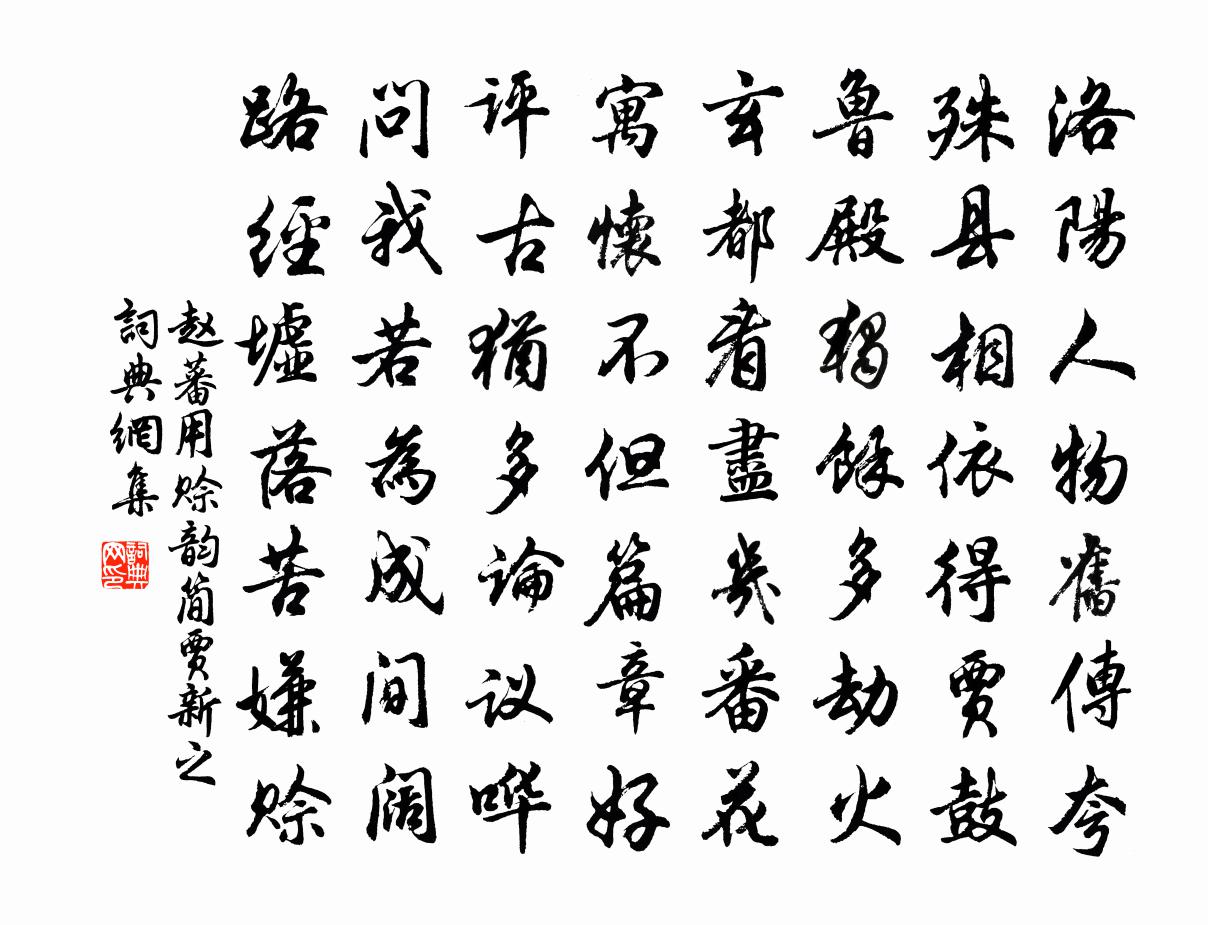 洛陽人物舊傳夸
殊县相依得贾鼓
魯殿独餘多劫火
玄都看盡幾番花
寓懷不但篇章好
评古猶多論议哗
问我若為成间阔
路經墟落苦嫌赊
赵蕃用赊韵简贾新之
詞典網集
詞典网印